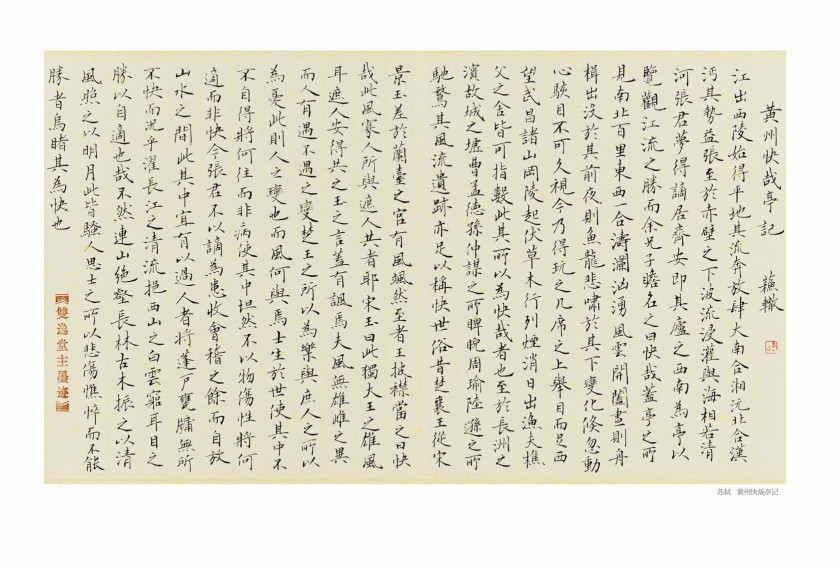 黃州快哉亭記 蘇轍
江出西陵始得平地其流奔放肆大南合湘沅北合漢
沔其勢益張至於赤壁之下波流浸灌與海相若清
河張君夢得謫居齊安即其廬之西南為亭以
覽觀江流之勝而余兄子瞻名之曰快哉蓋亭之所
見南北百里東西一合濤瀾洶湧風雲開闔晝則舟
楫出沒於其前夜則魚龍悲嘯於其下變化倏忽動
心駭目不可久視今乃得玩之几席之上舉目而足西
望武昌諸山岡陵起伏草木行列煙消日出漁夫樵
父之舍皆可指數此其所以為快哉者也至於長洲之
濱故城之墟曹孟德孫仲謀之所睥睨周瑜陸遜之所
馳騖其風流遺跡亦足以稱快世俗昔楚襄王從宋
景玉差於蘭臺之宮有風颯然至者王披襟當之曰快
哉此風寡人所與庶人共者耶宋玉曰此獨大王之雄風
耳庶人安得共之玉之言蓋有諷焉夫風無雄雌之異
而人有遇不遇之變楚王之所以為樂與庶人之所以
為憂此則人之變也而風何與焉士生於世使其中不
不自得將何往而非病使其中坦然不以物傷性將何
適而非快今張君不以謫為患收會稽之餘而自放
山水之間此其中宜有以過人者將蓬戶甕牖無所
不快而況乎濯長江之清流挹西山之白雲窮耳目之
勝以自適也哉不然連山絕壑長林古木振之以清
風照之以明月此皆騷人思士之所以悲傷憔悴而不能
勝者烏睹其為快也
雙逸堂主墨迹
苏轼 黄州快哉亭记